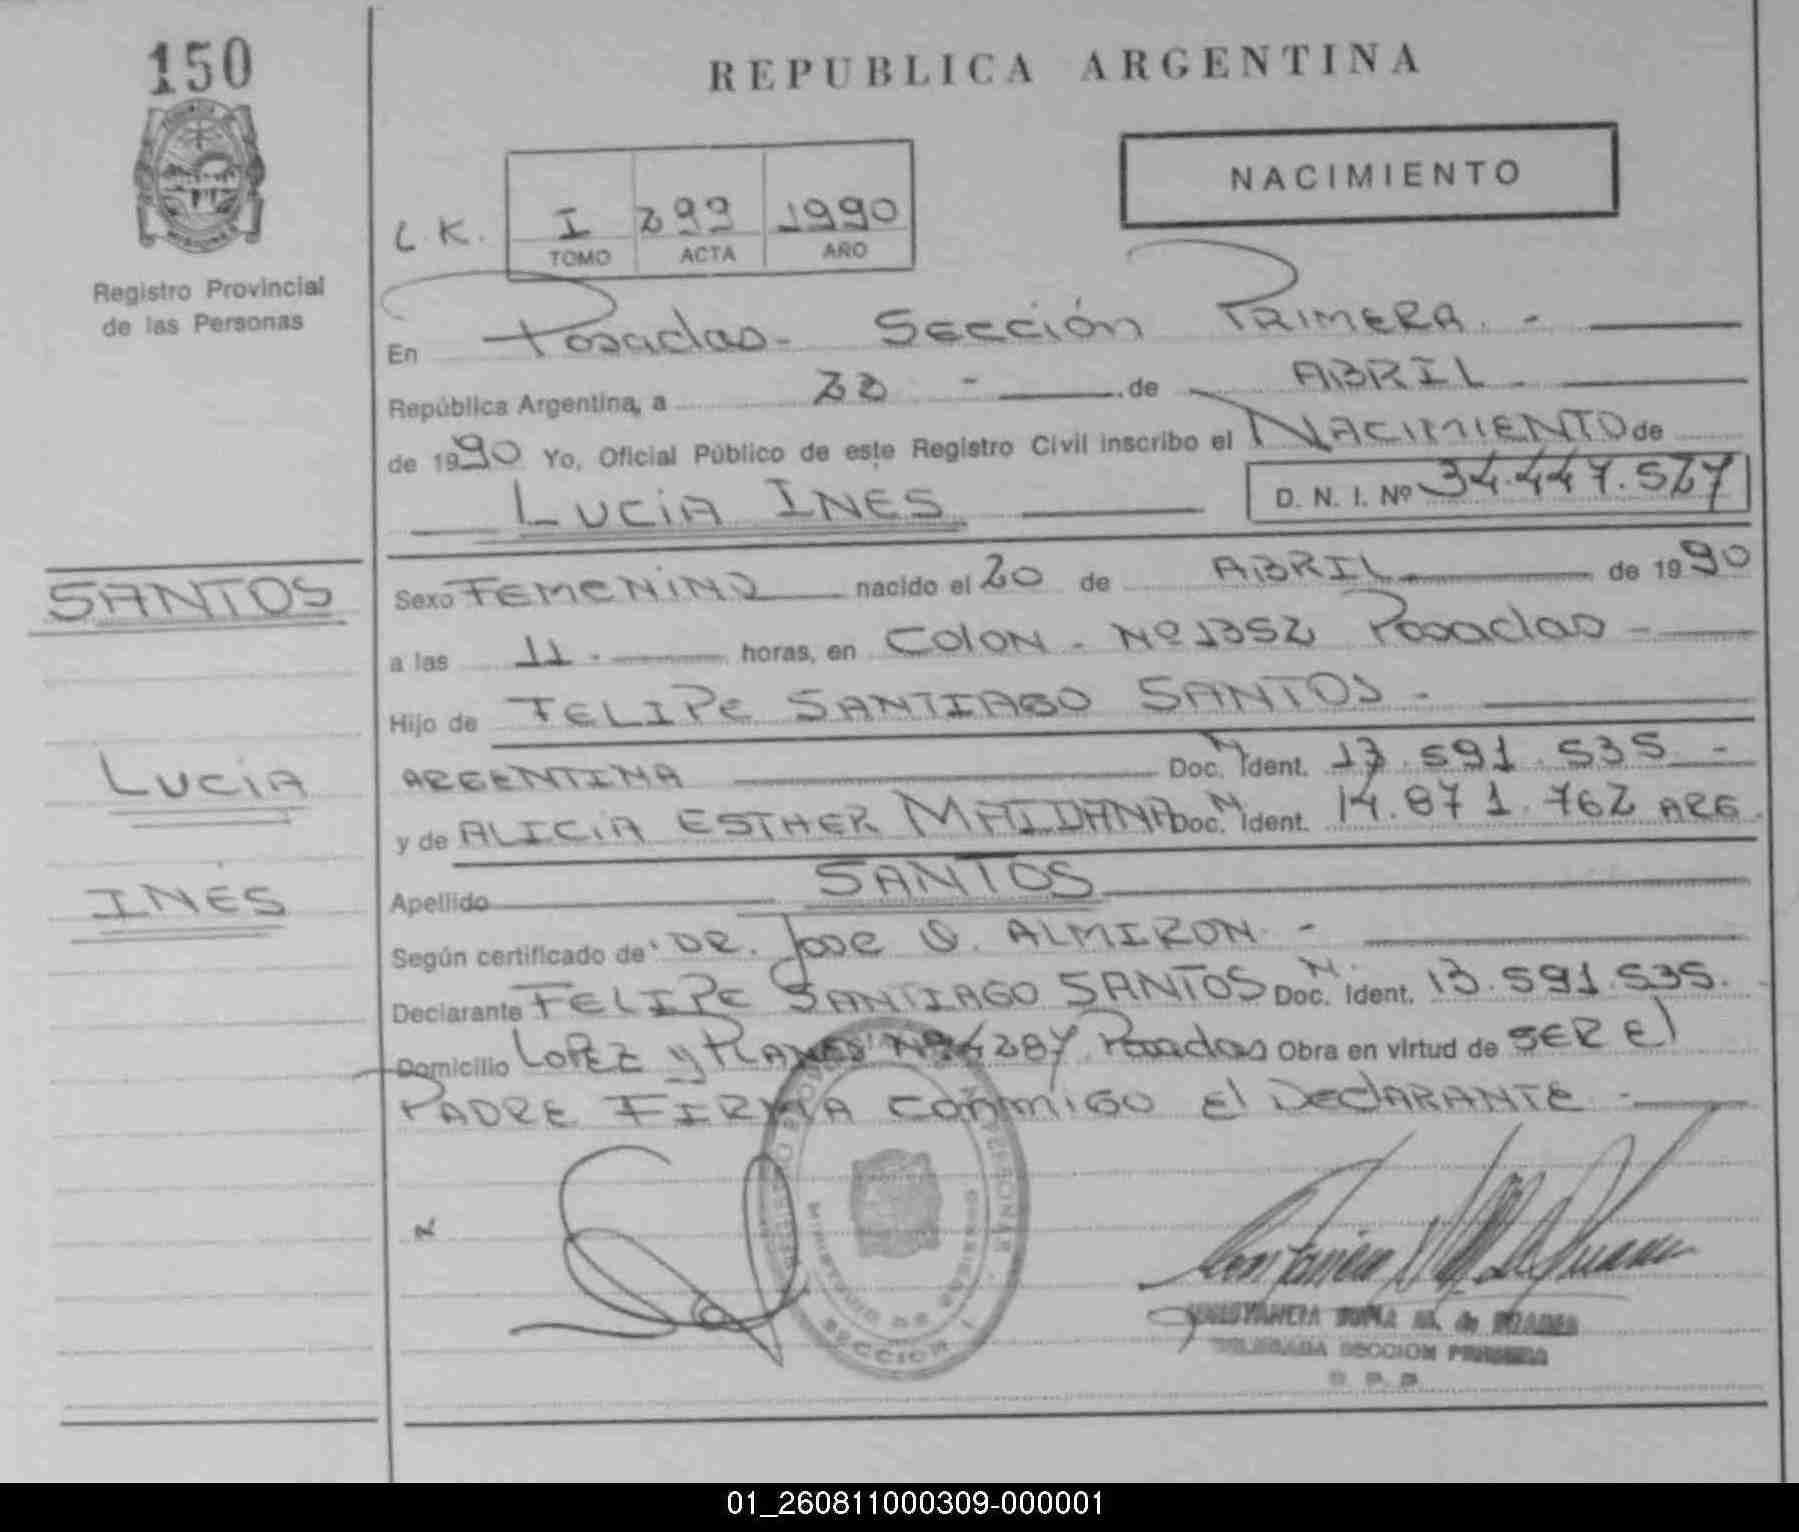 150
REPUBLICA ARGENTINA
NACIMIENTO
L.K. I 299 1990
TOMO ACTA AÑO
Registro Provincial
de las Personas
En Posadas - Sección Primera. -
República Argentina, a 22 - de ABRIL -
de 1990 Yo, Oficial Público de este Registro Civil inscribo el NACIMIENTO de
LUCIA INES D. N. I. Nº 34.447.527
SANTOS
LUCIA
INÉS
Sexo FEMENINO nacido el 20 de ABRIL de 1990
a las 11. horas, en COLON - Nº 1352 Posadas -
Hijo de FELIPE SANTIAGO SANTOS -
ARGENTINA Doc. N Ident. 13.591.535 -
y de ALICIA ESTHER MAIDANA Doc. N Ident. 14.871.762 ARG.
Apellido SANTOS
Según certificado de DR. Jose O. ALMIRON -
Declarante FELIPE SANTIAGO SANTOS Doc. N. Ident. 13.591.535.
Domicilio LOPEZ y PLANES Nº 4287 Posadas Obra en virtud de SER El
PADRE FIRMA CONMIGO El DEClARANTE -
MINISTERIO DE GOBIERNO
SECCION 1
DELEGADA SECCION PRIMERA
01_260811000309-000001